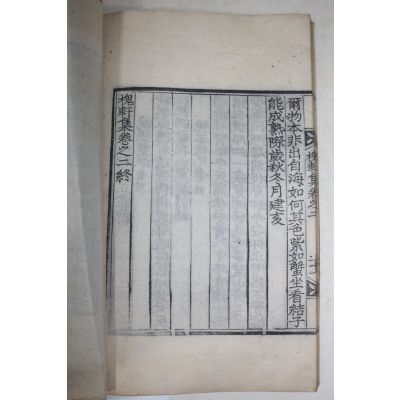 槐軒集卷之二
爾物本非出自海如何其色紫如蟹坐看結子
能成熟際歲秋冬月建亥
槐軒集卷之二終